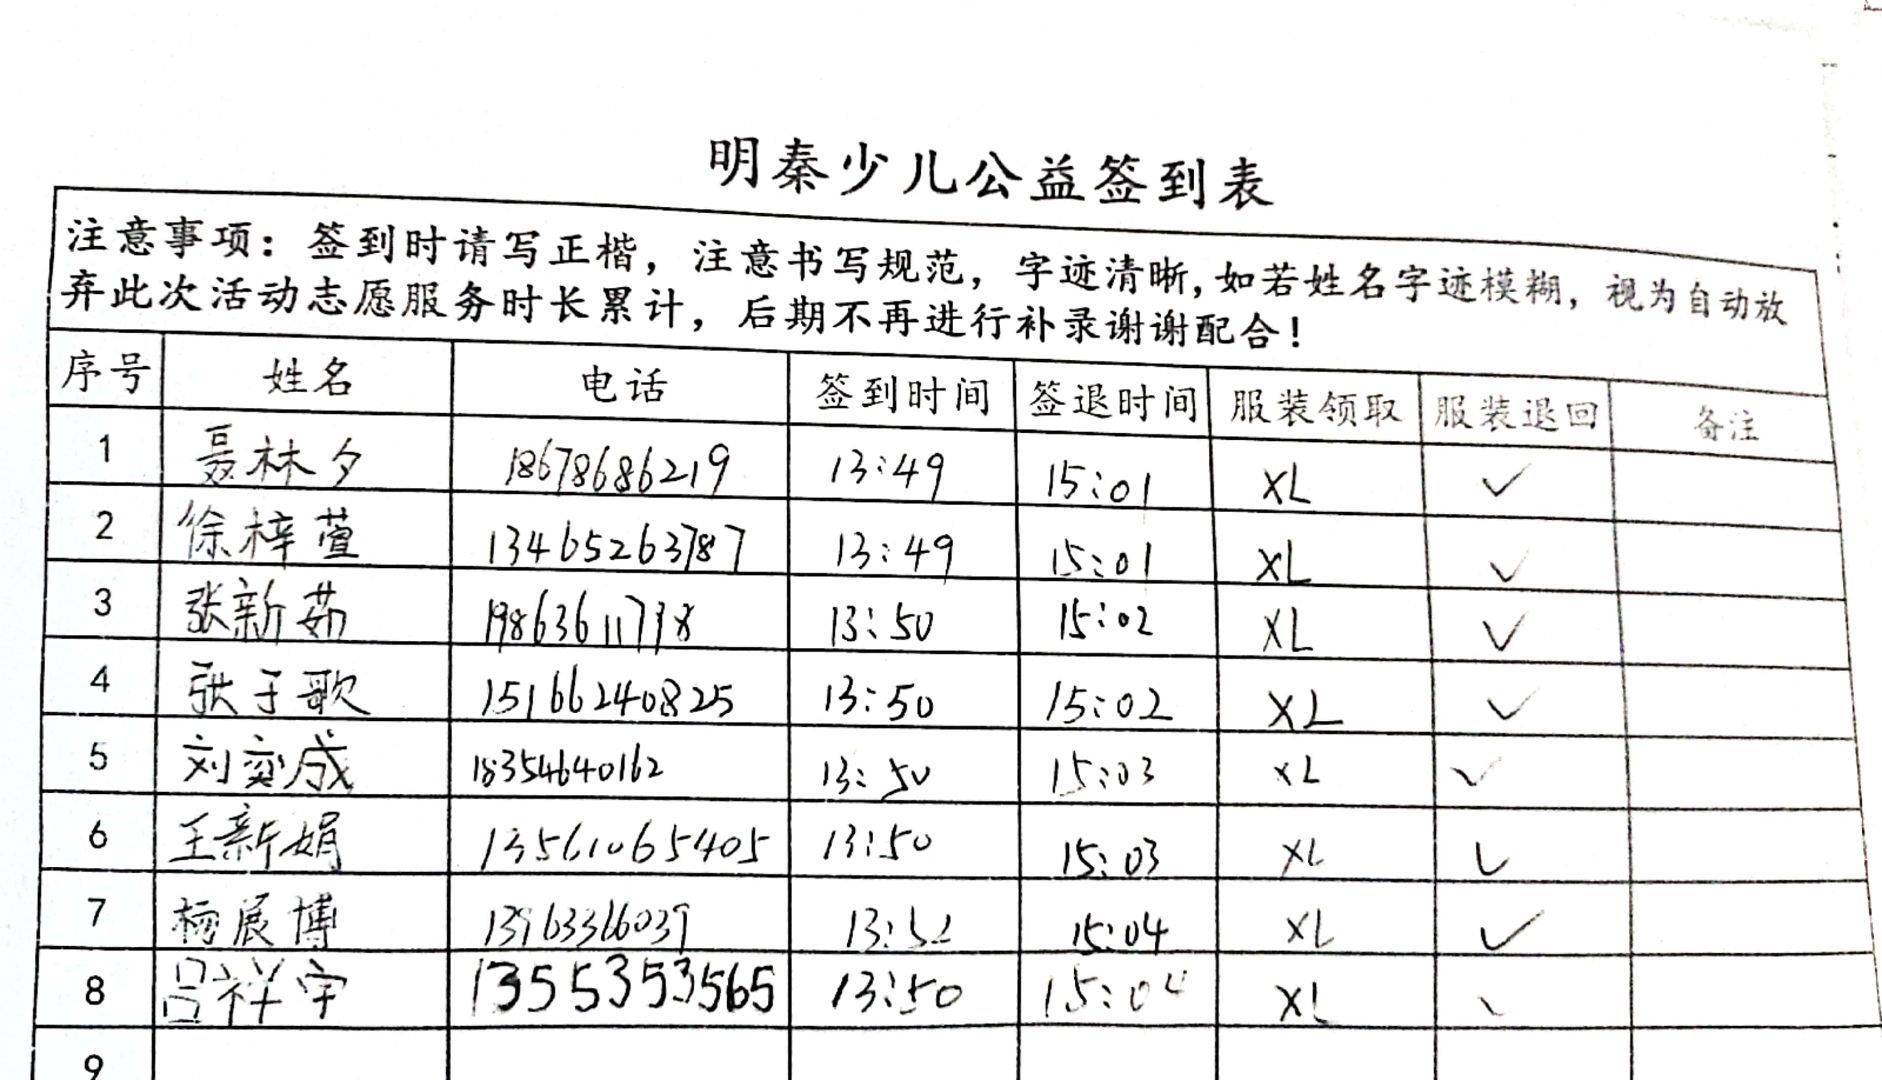 明秦少儿公益签到表
注意事项：签到时请写正楷，注意书写规范，字迹清晰，如若姓名字迹模糊，视为自动放
弃此次活动志愿服务时长累计，后期不再进行补录谢谢配合！
序号 姓名 电话 签到时间 签退时间 服装领取 服装退回 备注
1 聂林夕 18678686219 13:49 15:01 XL ✓
2 徐梓萱 13465263787 13:49 15:01 XL ✓
3 张新茹 13:50 15:02 XL ✓
4 张于歌 15166240825 13:50 15:02 XL ✓
5 刘奕成 18354640162 13:50 15:03 XL ✓
6 王新娟 13561065405 13:50 15:03 XL ✓
7 杨展博 13963366039 13:52 15:04 XL ✓
8 吕祥宇 1355353565 13:50 15:04 XL ✓
9